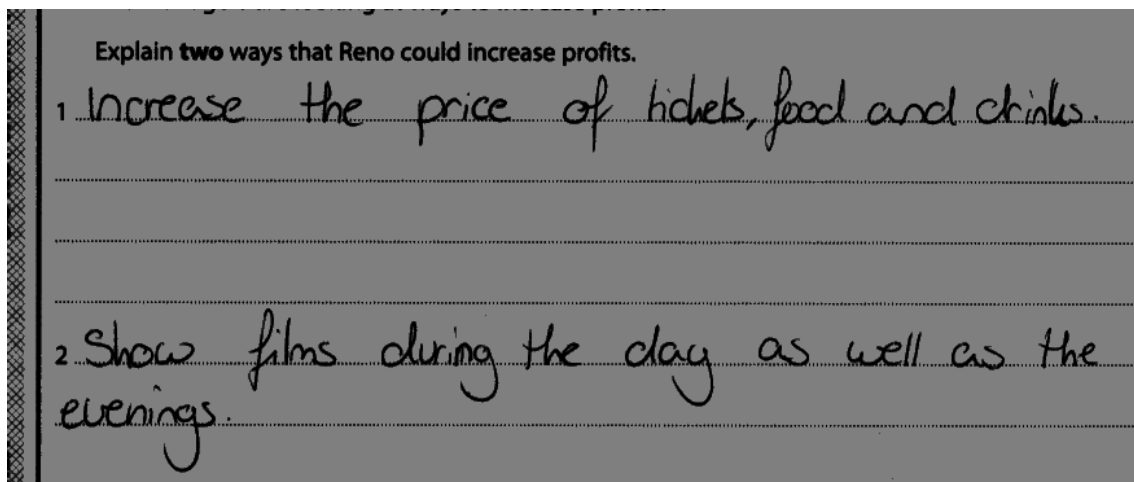 Explain two ways that Reno could increase profits.
1 Increase the price of tickets, food and drinks.
2 Show films during the day as well as the
evenings.